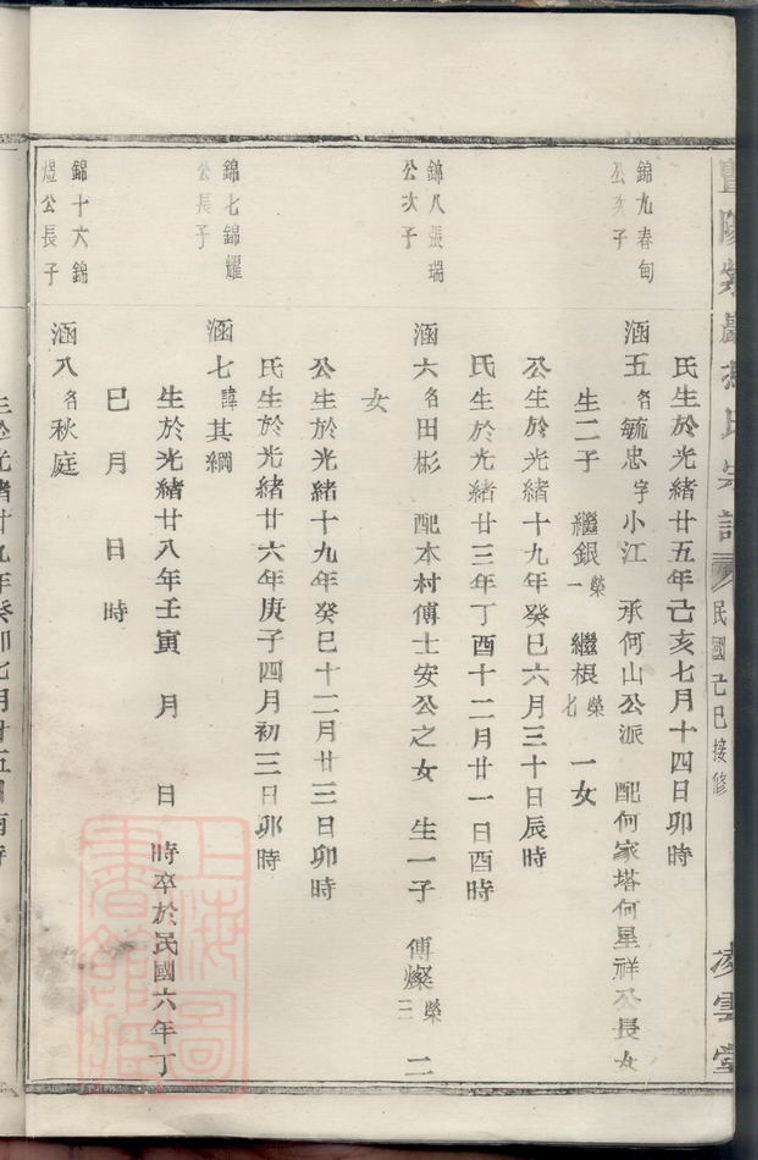 氏宗譜 民國己巳接修 凌雲堂
氏生於光緒廿五年己亥七月十四日卯時
錦九春甸
公次子
涵五名毓忠字小江 承何山公派 配何家塔何星祥公長女
生二子 繼銀榮一 繼根榮七 一女
公生於光緒十九年癸巳六月三十日辰時
氏生於光緒廿三年丁酉十二月廿一日酉時
錦八張瑞
公次子
涵六名田彬 配本村傅士安公之女 生一子 傅燦榮三 二
女
公生於光緒十九年癸巳十二月廿三日卯時
氏生於光緒廿六年庚子四月初三日卯時
錦七錦耀
公長子
涵七諱其綱
生於光緒廿八年壬寅 月 日 時卒於民國六年丁
巳 月 日 時
錦十六錦
煜公長子
涵八名秋庭
上海圖
書館藏